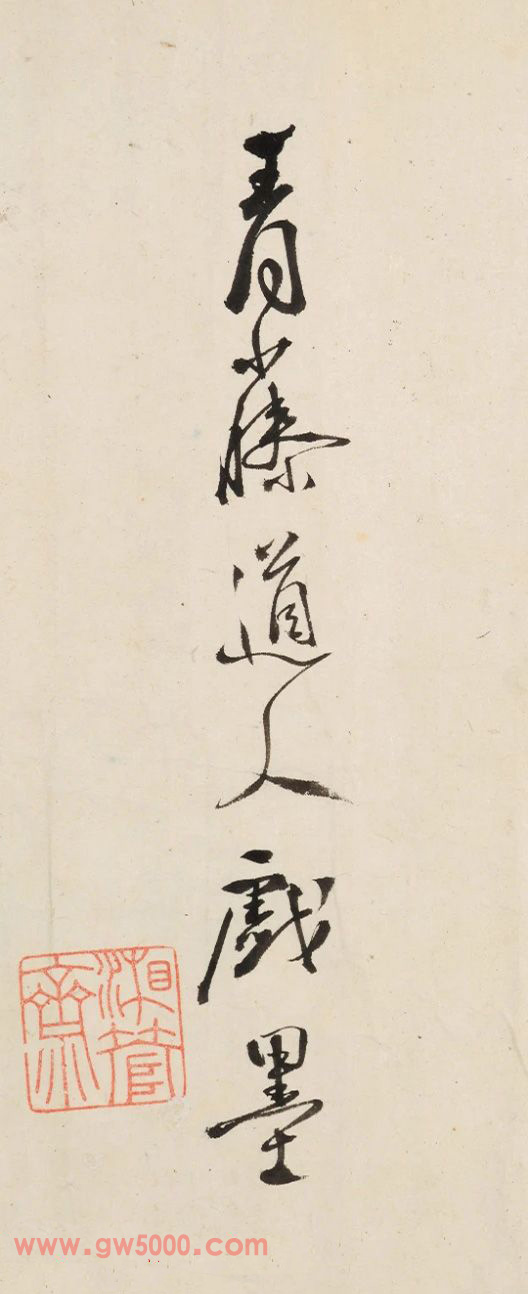 青藤道人戲墨
湘管齋
www.gw5000.com